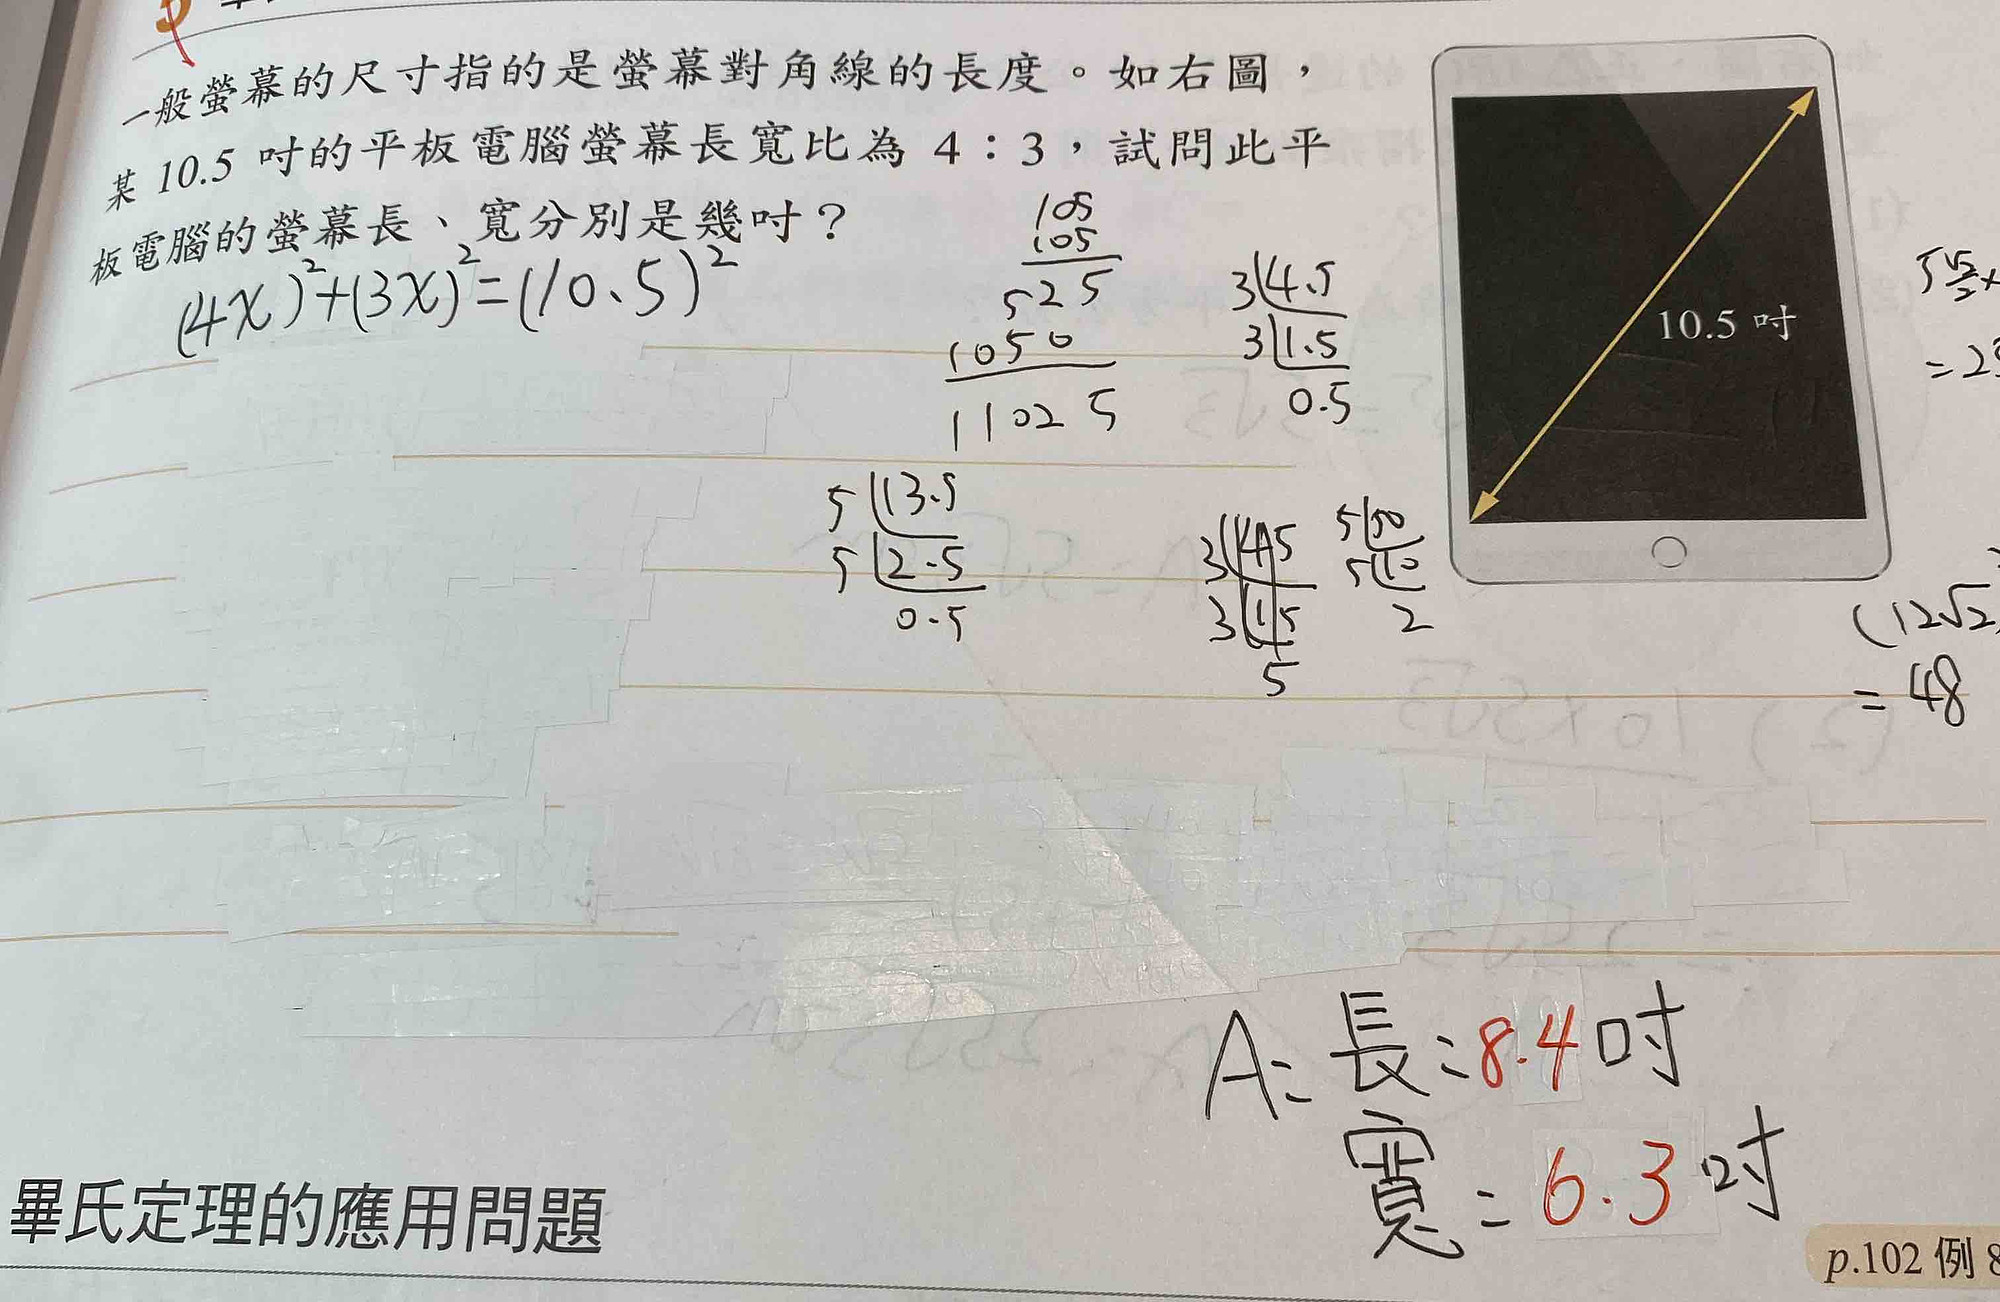 一般螢幕的尺寸指的是螢幕對角線的長度。如右圖，
某 10.5 吋的平板電腦螢幕長寬比為 4：3，試問此平
板電腦的螢幕長、寬分別是幾吋？
(4X)²+(3X)²=(10.5)²
105
105
525
1050
11025
3 4.5
3 1.5
0.5
10.5 吋
5 13.5
5 2.5
0.5
3 45
3 15
5
5 50
5 10
2
(12√2
= 48
A= 長=8.4吋
寬=6.3吋
畢氏定理的應用問題
p.102 例 8